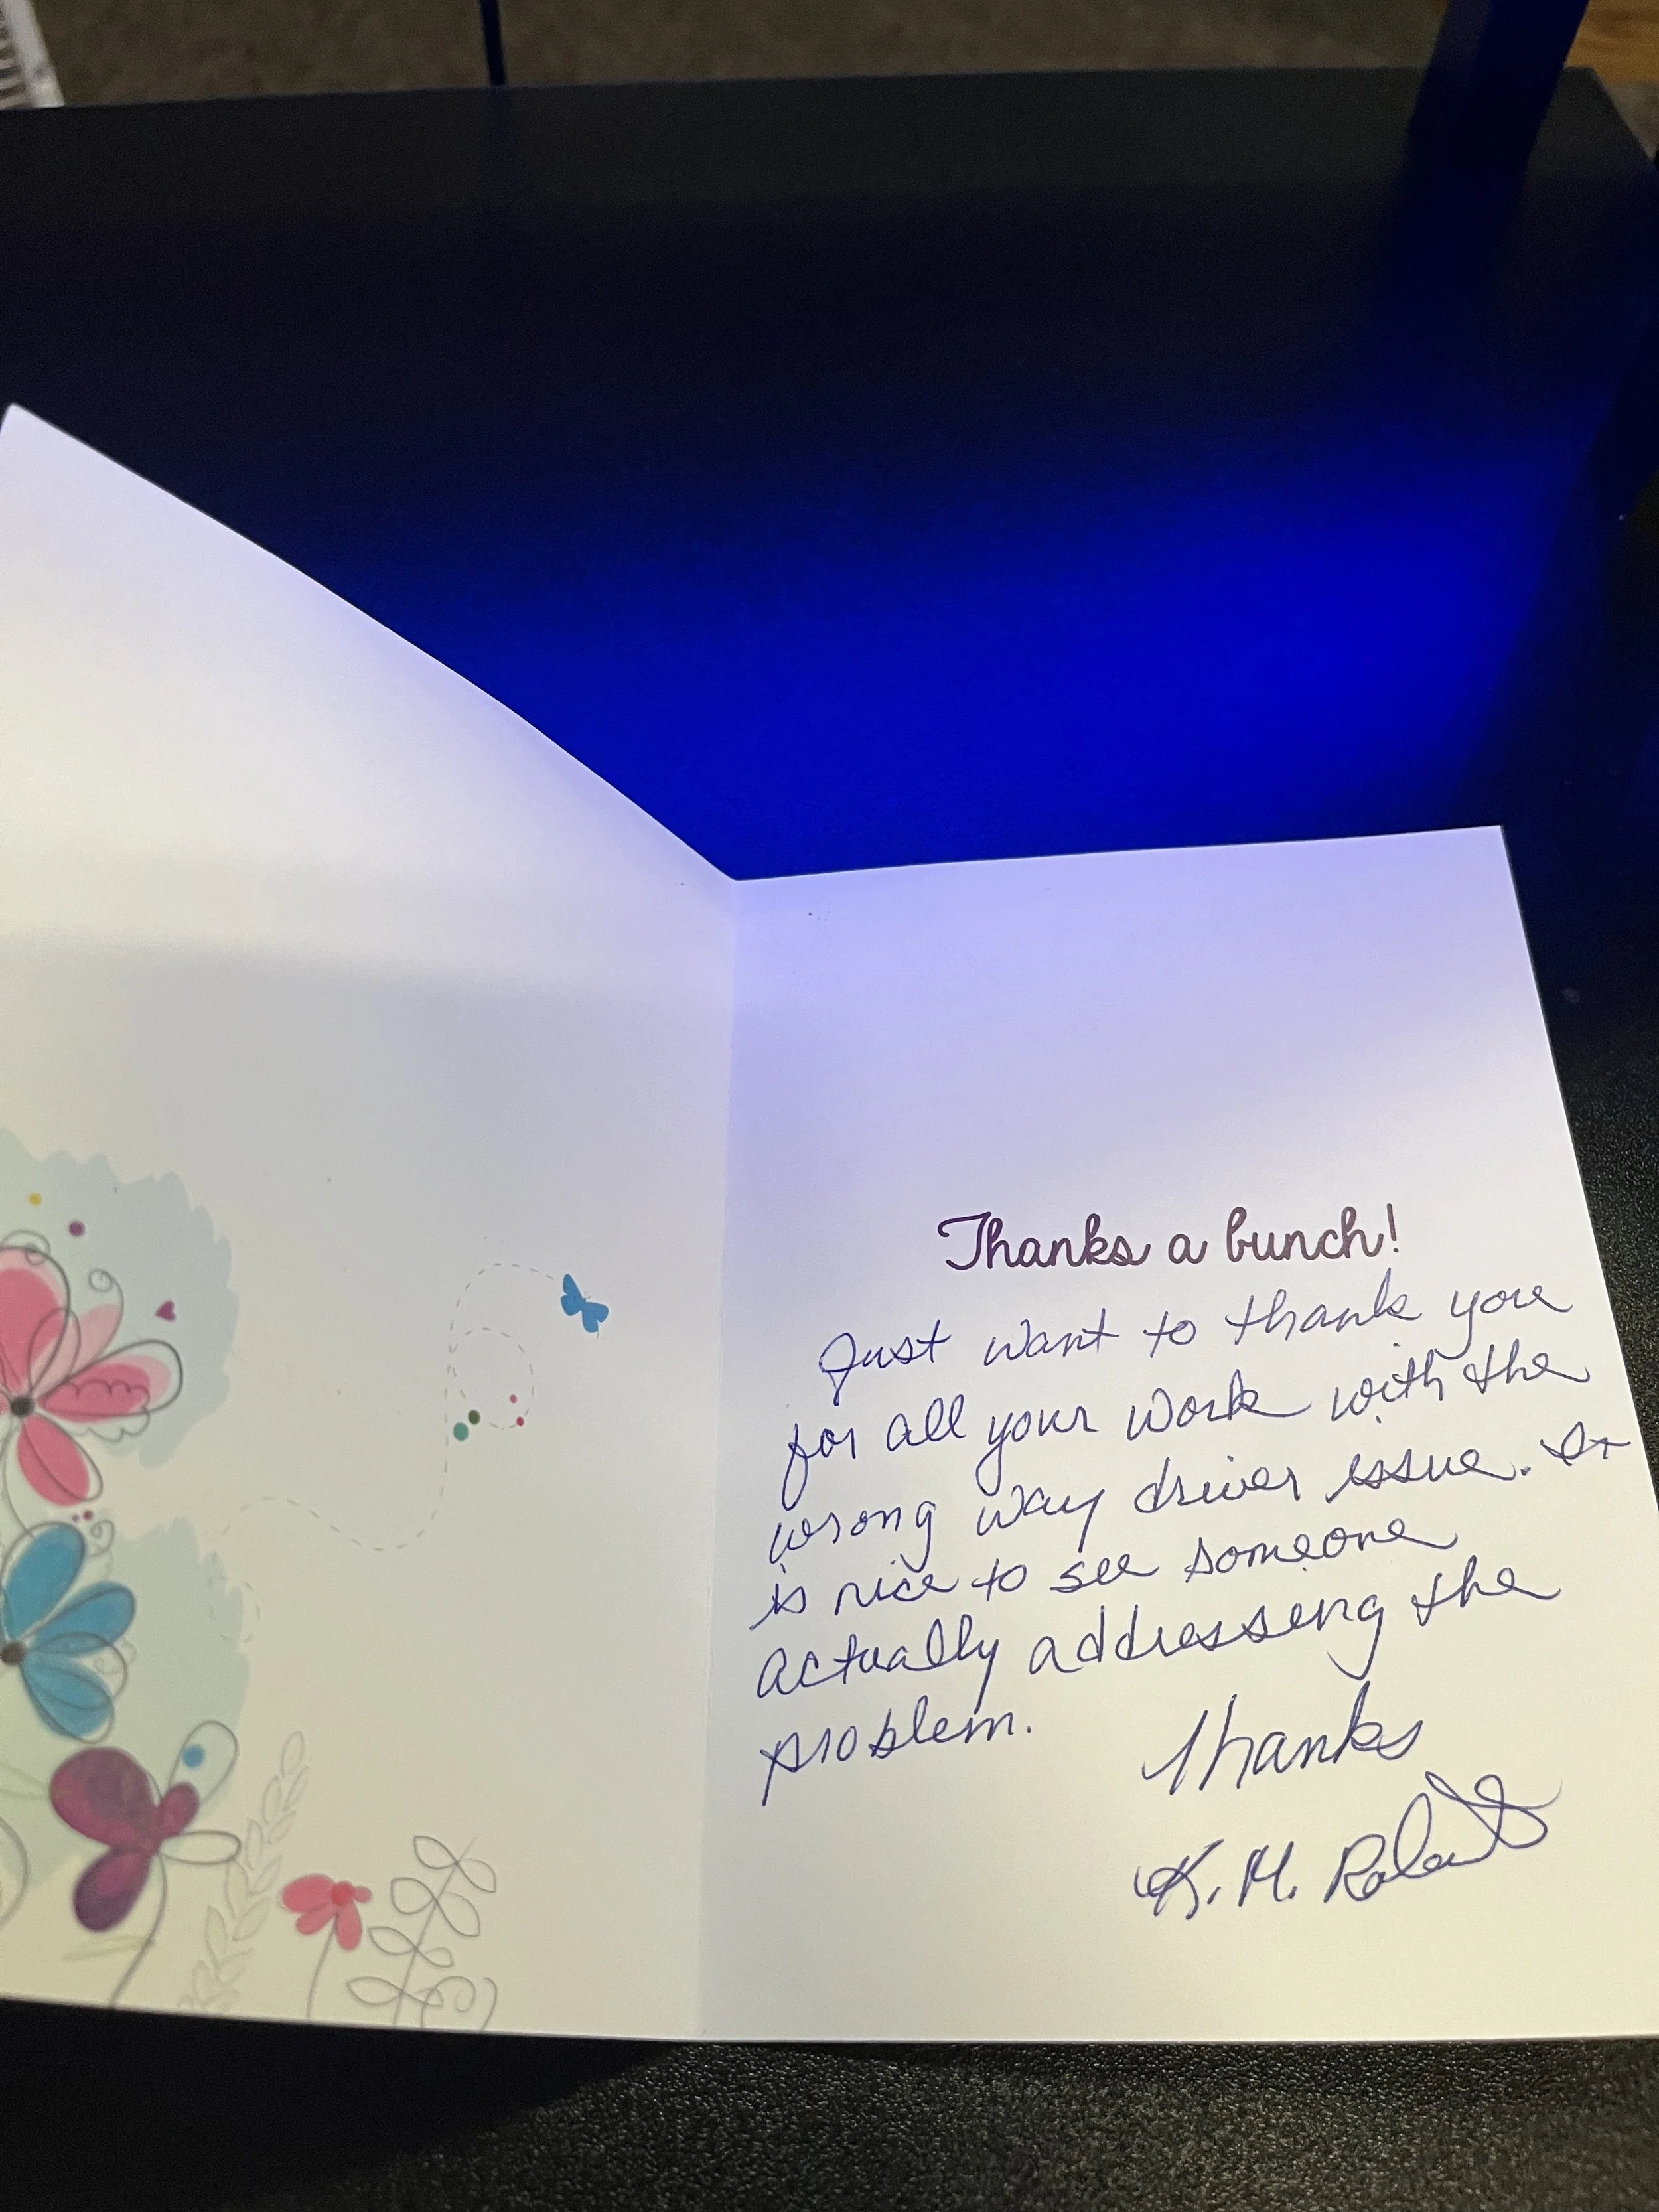 Thanks a bunch!
Just want to thank you
for all your work with the
wrong way driver issue. It
is nice to see someone
actually addressing the
problem.
Thanks
K. M. Roberts